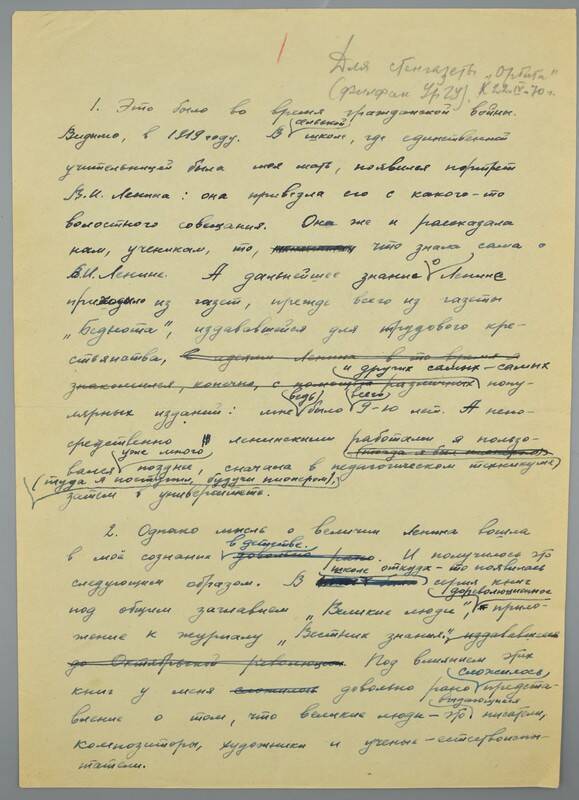 Для стенгазеты „Орбита"
(Филфак УрГУ). К 22-IV-70 г.
1. Это было во время гражданской войны.
Видимо, в 1919 году. В сельской школе, где единственной
учительницей была моя мать, появился портрет
В.И. Ленина: она привезла его с какого-то
волостного совещания. Она же и рассказала
нам, ученикам, то, что знала сама о
В.И. Ленине. А дальнейшее знание о Ленине
приходило из газет, прежде всего из газеты
„Беднота", издававшейся для трудового кре-
стьянства, с идеями Ленина в то время я
и других самых-самых
знакомился, конечно, с помощью различных попу-
лярных изданий: мне ведь было всего 9-10 лет. А непо-
средственно ленинскими работами я пользо-
(тогда я был пионером)
вался уже много позднее, сначала в педагогическом техникуме
(туда я поступил, будучи пионером),
затем в университете.
2. Однако мысль о величии Ленина вошла
в моё сознание в детстве. довольно рано. И получилось это
следующим образом. В школе откуда-то появилась серия книг
под общим заглавием „Великие люди", дореволюционное прило-
жение к журналу „Вестник знания", издававшемся
до Октябрьской революции. Под влиянием этих
книг у меня сложилось довольно рано сложилось предста-
вление о том, что великие люди – это выдающиеся писатели,
композиторы, художники и ученые-естествоиспы-
татели.